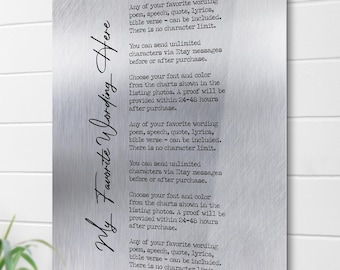 My Favorite Wording Here
Any of your favorite wording
poem, speech, quote, lyrics,
bible verse - can be included.
There is no character limit.
You can send unlimited
characters via Etsy messages
before or after purchase.
Choose your font and color
from the charts shown in the
listing photos. A proof will be
provided within 24-48 hours
after purchase.
Any of your favorite wording
poem, speech, quote, lyrics,
bible verse - can be included.
There is no character limit.
You can send unlimited
characters via Etsy messages
before or after purchase.
Choose your font and color
from the charts shown in the
listing photos. A proof will be
provided within 24-48 hours
after purchase.
Any of your favorite wording
poem, speech, quote, lyrics,
bible verse - can be included.
There is no character limit.